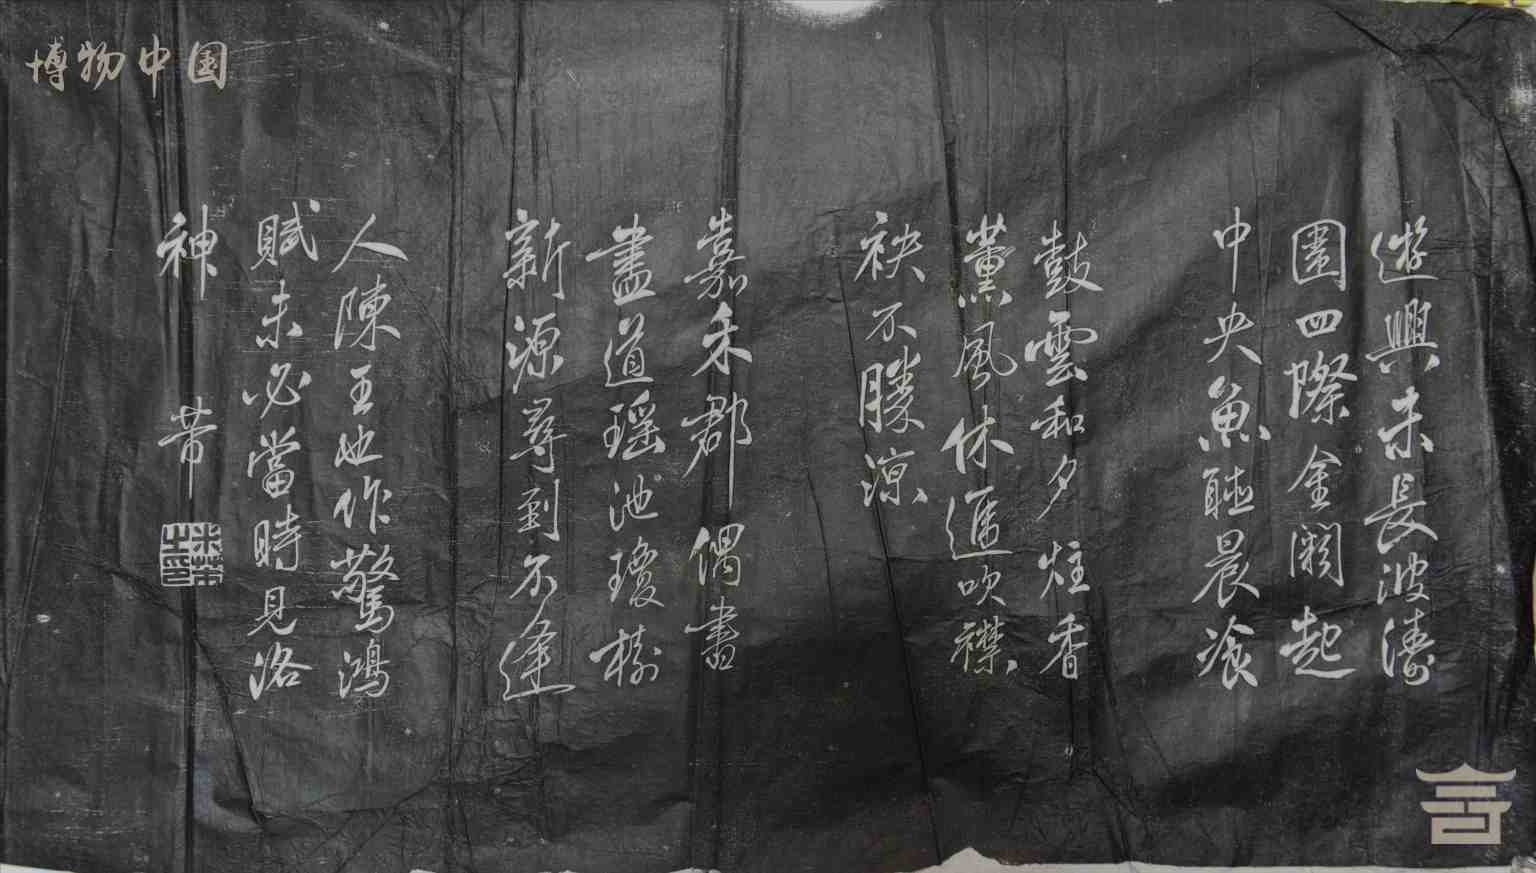 遊興未長波濤
圍四際金闕起
中央魚聽晨飡
鼓雲和夕炷香
薰風休進吹襟
袂不勝涼
嘉禾郡偶書
盡道瑤池瓊樹
新源尋到不逢
人陳王也作驚鴻
賦未必當時見洛
神 芾
米芾之印
博物中国